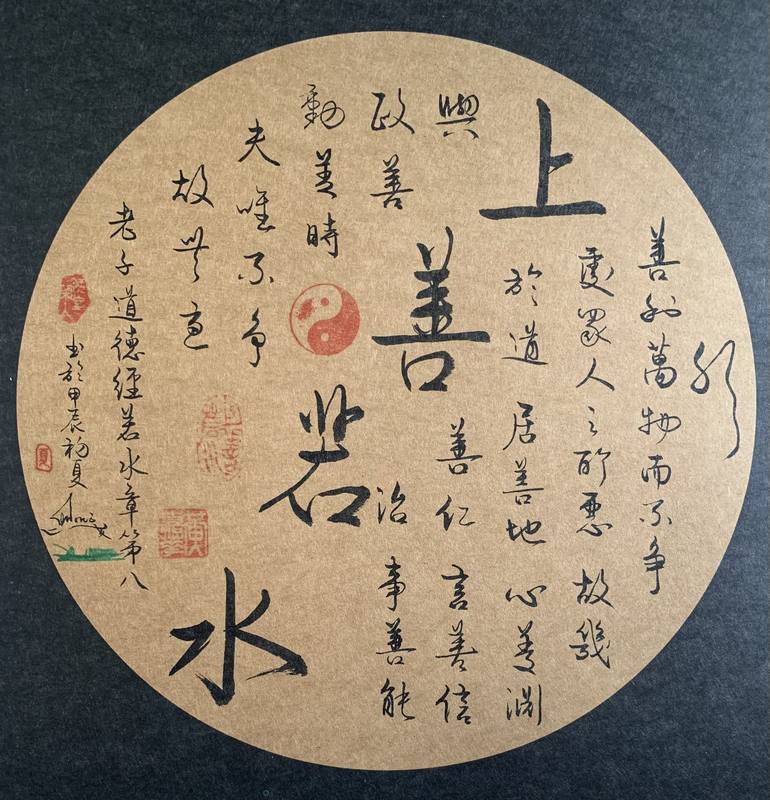 上善若水
水
善利萬物而不争
處眾人之所惡 故幾
於道 居善地 心善渊
與善仁 言善信
政善治 事善能
動善時
夫唯不争
故無尤
老子道德經若水章第八
书於甲辰初夏